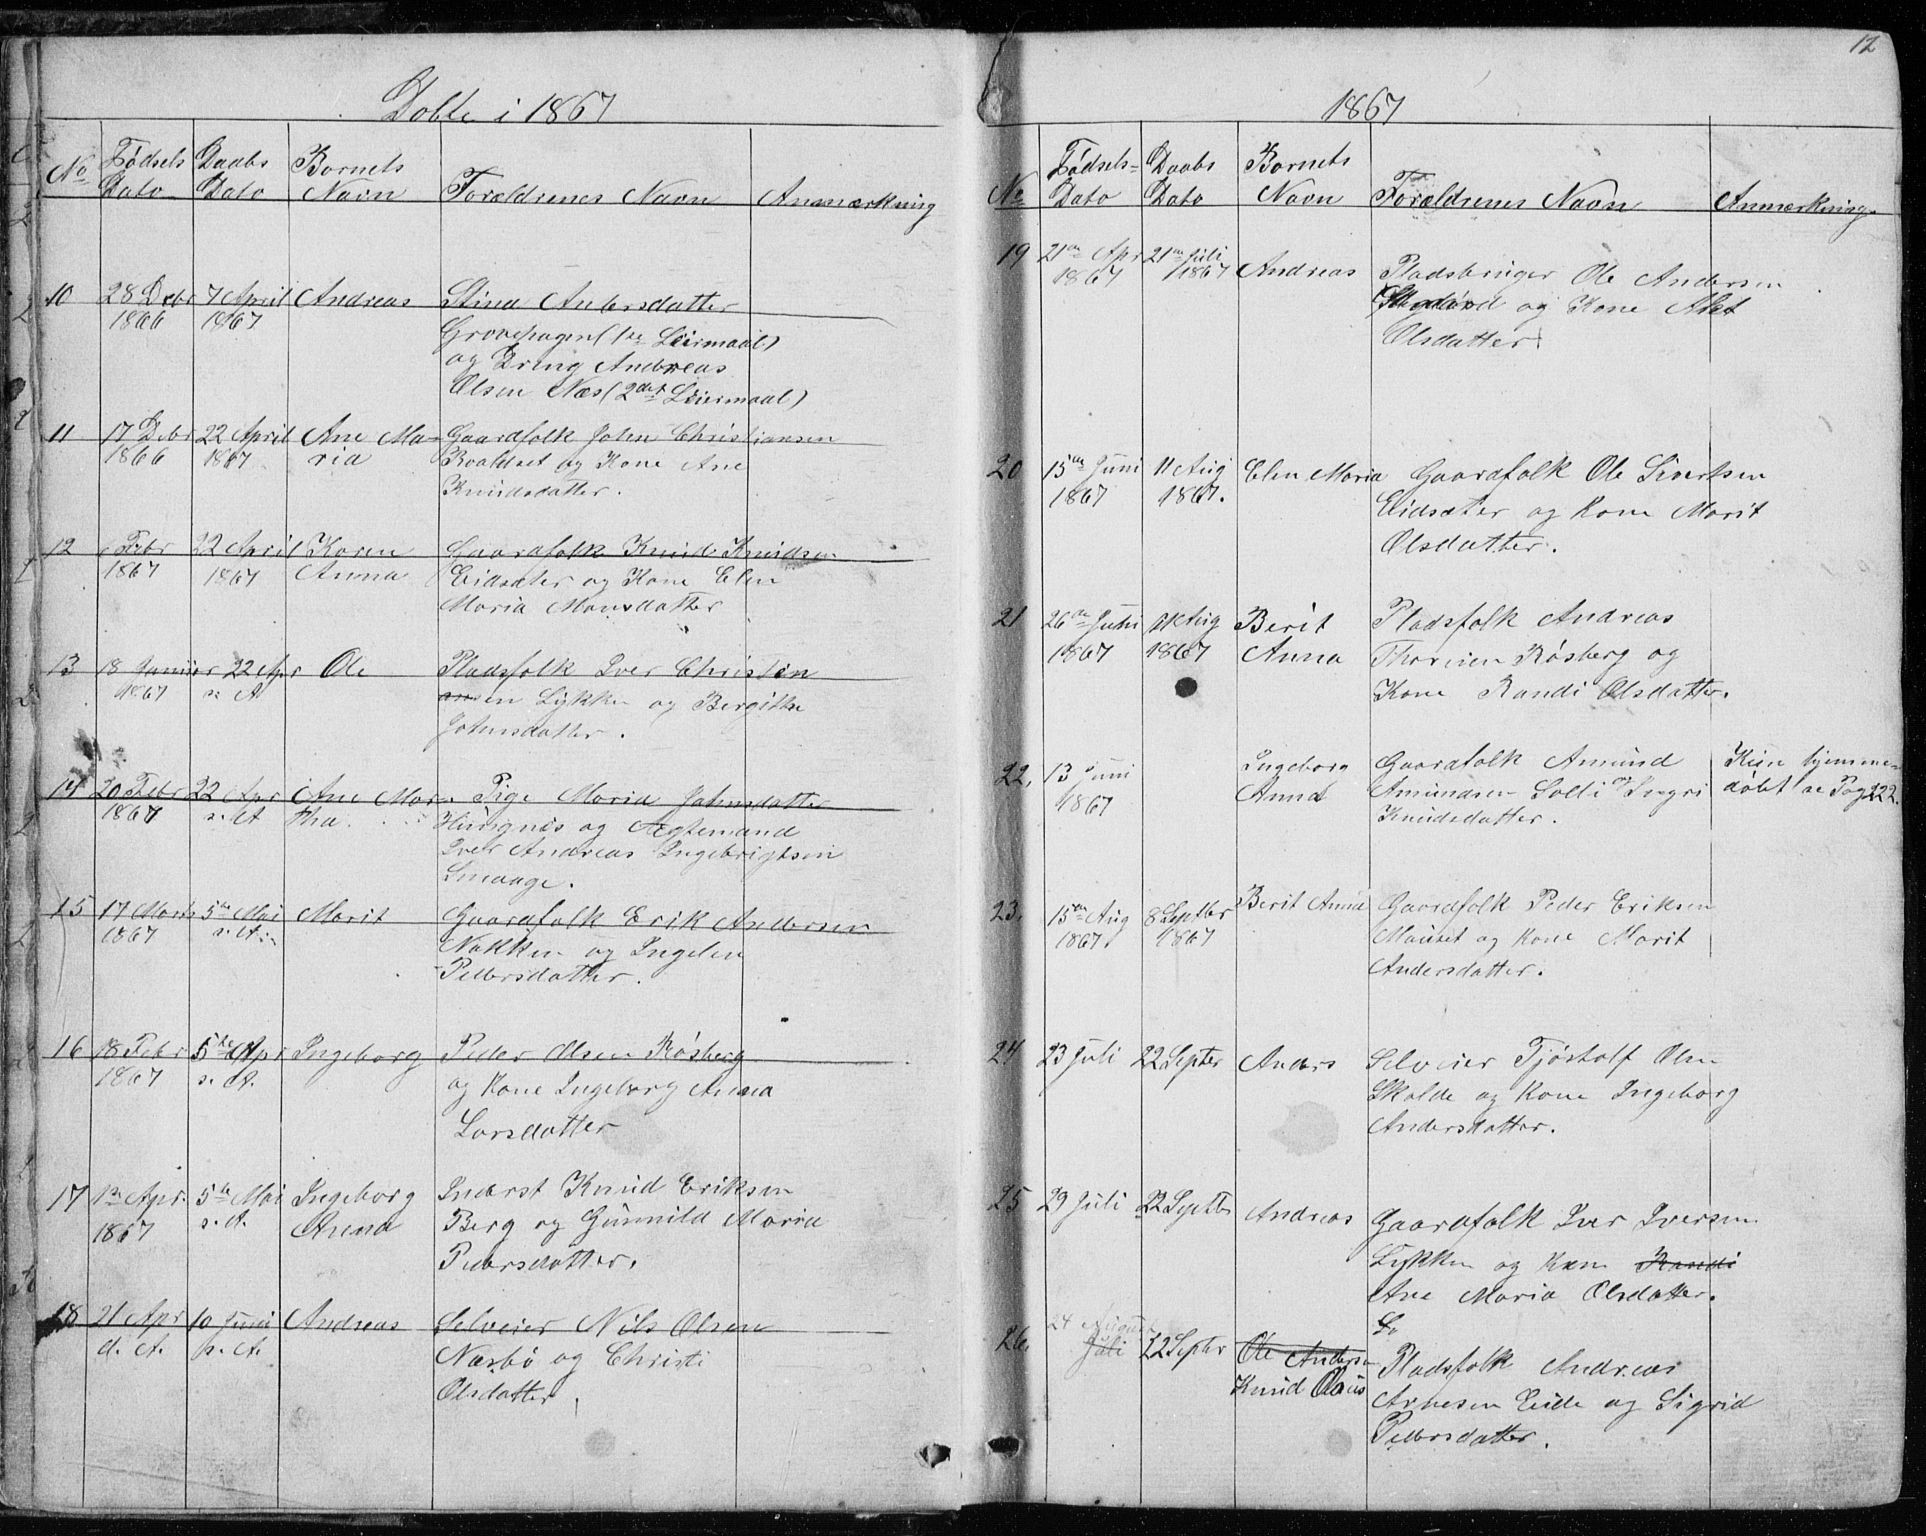 Døbte i 1867
No Fødsels Dato Daabs Dato Barnets Navn Forældrenes Navn Anmærkning
10 28 Debr 7 April Andreas Stina Andersdatter
1866 1867 Grovehagen (1te Leiermaal)
og Dreng Andreas
Olsen Næs (2det Leiermaal)
11 17 Debr 22 April Ane Ma- Gaardfolk John Christiansen
1866 1867 ria Roaldset og Kone Ane
Knudsdatter.
12 6 Febr 22 April Karen Gaardfolk Knud Knudsen
1867 1867 Anna Eidsæter og Kone Elen
Maria Monsdatter
13 18 Januar 22 Apr Ole Pladsfolk Iver Christen
1867 s. A en Lykken og Bergithe
Johnsdatter.
14 20 Febr 22 Apr Ane Mar- Pige Maria Johnsdatter
1867 s. A tha og Ægtemand
Iver Andreas Ingebrigtsen
Smaage.
15 17 Marts 5te Mai Marit Gaardfolk Erik Andersen
1867 s. A. Nakken og Ingelen
Pedersdatter.
16 18 Febr 5te Apr Ingeborg Peder Olsen Røsberg
1867 s. A. og Kone Ingeborg Anna
Larsdatter
17 1te Apr. 5te Mai Ingeborg Inderst Knud Eriksen
1867 s. A. Anna Berg og Gunnild Maria
Pedersdatter.
18 21 Apr 10 Juni Andreas Selveier Nils Olsen
d. A. s. A. Næsbø og Christi
Olsdatter.
12
1867
No Fødsels- Dato Daabs Dato Barnets Navn Forældrenes Navn Anmærkning.
19 21de Apr 21de Juli Andreas Pladsbruger Ole Andersen
1867 1867 og Kone
Olsdatter.
20 15de Juni 11 Aug Elen Maria Gaardfolk Ole Sivertsen
1867 1867. Eidsæter og Kone Marit
Olsdatter.
21 26de Juni Aug Berit Pladsfolk Andreas
1867 1867 Anna Røsberg og
Kone Randi Olsdatter.
22. 13 Juni Ingeborg Gaardfolk Amund Kun hjemme-
1867 Anna Amundsen Solli og Ingri døbt se Pag 222.
Knudsdatter.
23. 15de Aug 8 Septbr Berit Anna Gaardfolk Peder Eriksen
1867 1867 Mauset og Kone Marit
Andersdatter.
24 23 Juli 22 Septer Anders Selveier Tjøstolf Olsen
Skalde og Kone Ingeborg
Andersdatter.
25 29 Juli 22 Septbr Andreas Gaardfolk Iver Iversen
Lykken og Kone Randi
Ane Maria Olsdatter.
24 August
26. Juli 22 Septbr Ole Andersen Pladsfolk Andreas
Knud Olaus Arnesen Eide og Sigrid
Pedersdatter.